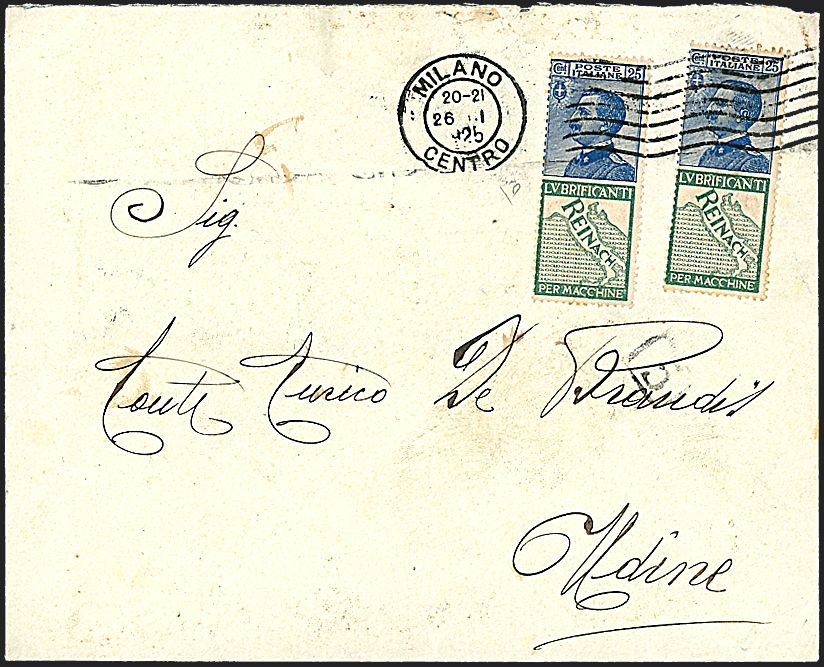 MILANO
20-21
26 I
1925
CENTRO
Cmi POSTE ITALIANE 25
LVBRIFICANTI
REINACH
PER MACCHINE
Cmi POSTE ITALIANE 25
LVBRIFICANTI
REINACH
PER MACCHINE
Sig.
Conte Enrico De Brandis
Udine